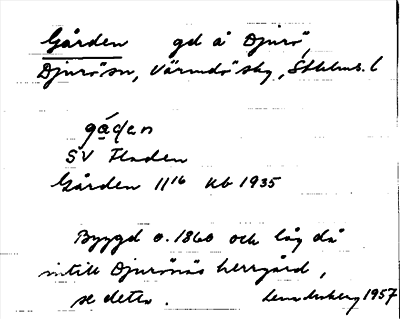 Gården gd å Djurö,
Djurö sn, Värmdö skg, Sthlms. l
gǻdan
SV Fladen
Gården 11¹⁶ Kb 1935
Byggd o. 1860 och låg då
intill Djurönäs herrgård,
se detta.
1957